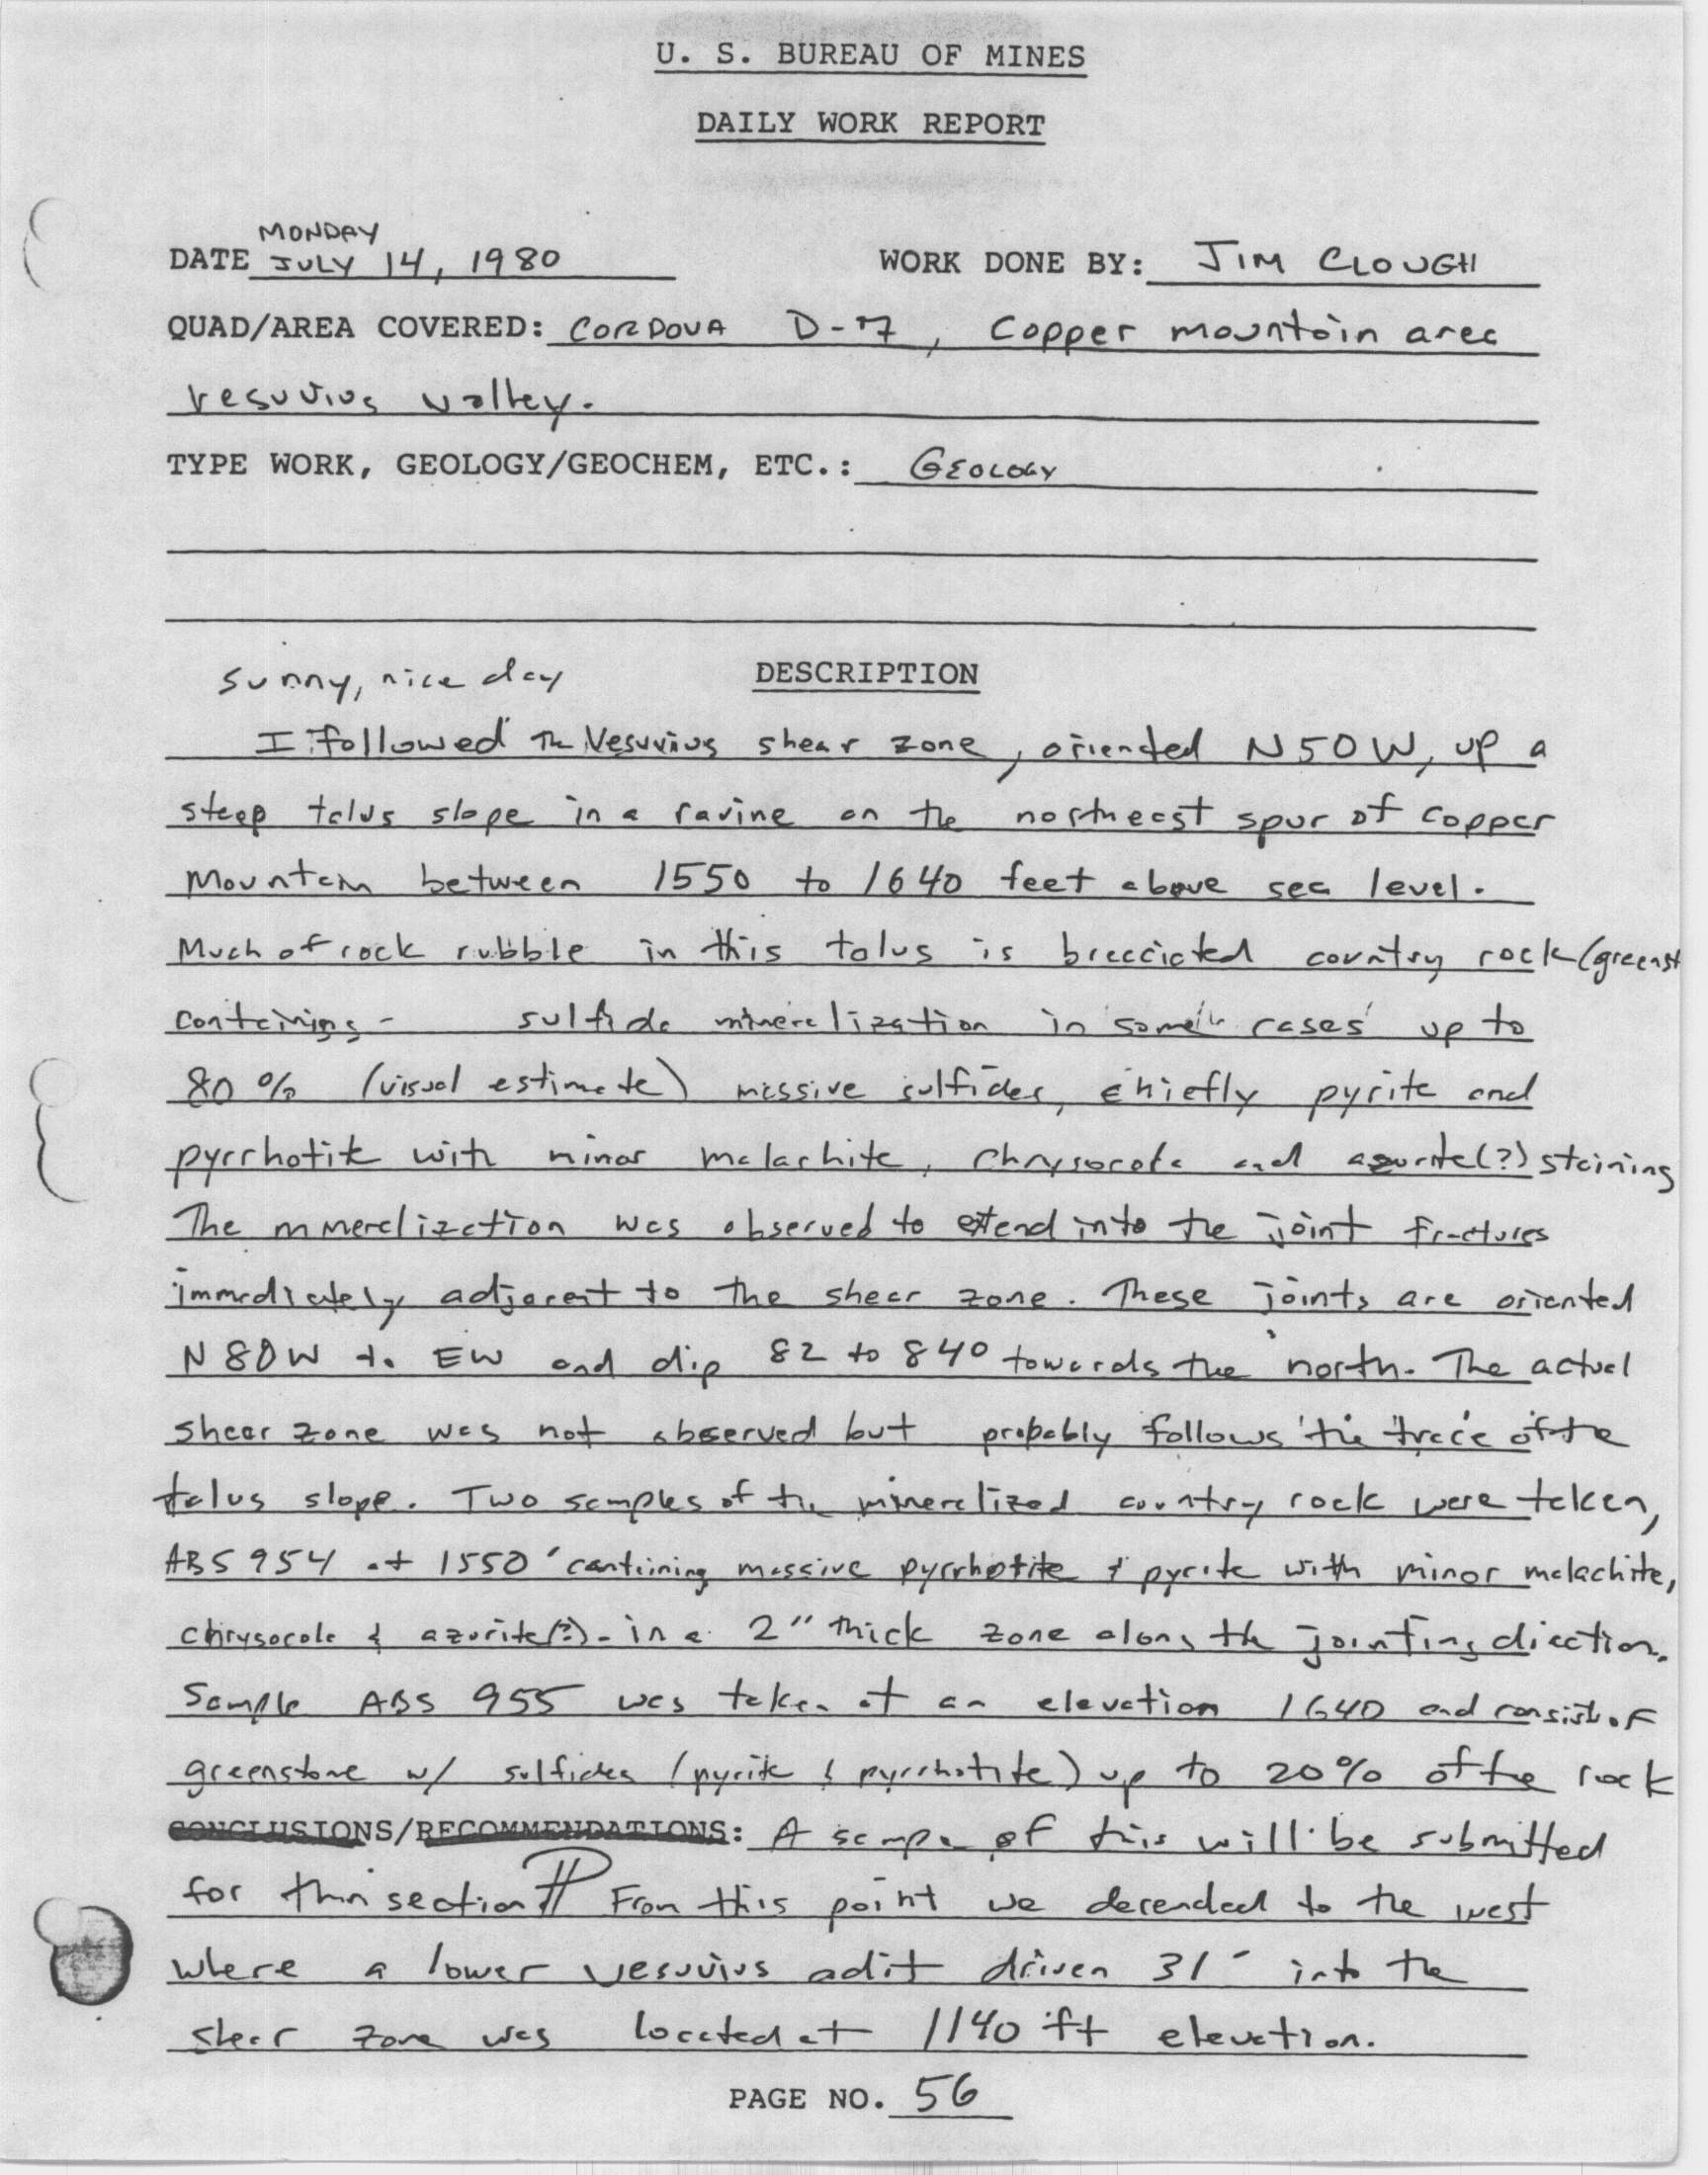 U. S. BUREAU OF MINES
DAILY WORK REPORT
MONDAY
DATE JULY 14, 1980 WORK DONE BY: JIM CLOUGH
QUAD/AREA COVERED: CORDOVA D-7, Copper mountain area
Vesuvius valley.
TYPE WORK, GEOLOGY/GEOCHEM, ETC.: GEOLOGY
sunny, nice day DESCRIPTION
I followed the Vesuvius shear zone, oriented N50W, up a
steep talus slope in a ravine on the northeast spur of Copper
Mountain between 1550 to 1640 feet above sea level.
Much of rock rubble in this talus is brecciated country rock (greenst
containing - sulfide mineralization in some cases up to
80% (visual estimate) massive sulfides, chiefly pyrite and
pyrrhotite with minor malachite, chrysocola and azurite(?) staining
The mineralization was observed to extend into the joint fractures
immediately adjacent to the shear zone. These joints are oriented
N80W to EW and dip 82 to 84° towards the north. The actual
shear zone was not observed but probably follows the trace of the
talus slope. Two samples of the mineralized country rock were taken,
ABS 954 at 1550' containing massive pyrrhotite & pyrite with minor malachite,
chrysocola & azurite(?) - in a 2" thick zone along the jointing direction.
Sample ABS 955 was taken at an elevation 1640 and consist of
greenstone w/ sulfides (pyrite & pyrrhotite) up to 20% of the rock
CONCLUSIONS/RECOMMENDATIONS: A sample of this will be submitted
for thin section ¶ From this point we decended to the west
where a lower Vesuvius adit driven 31' into the
shear zone was located at 1140 ft elevation.
PAGE NO. 56